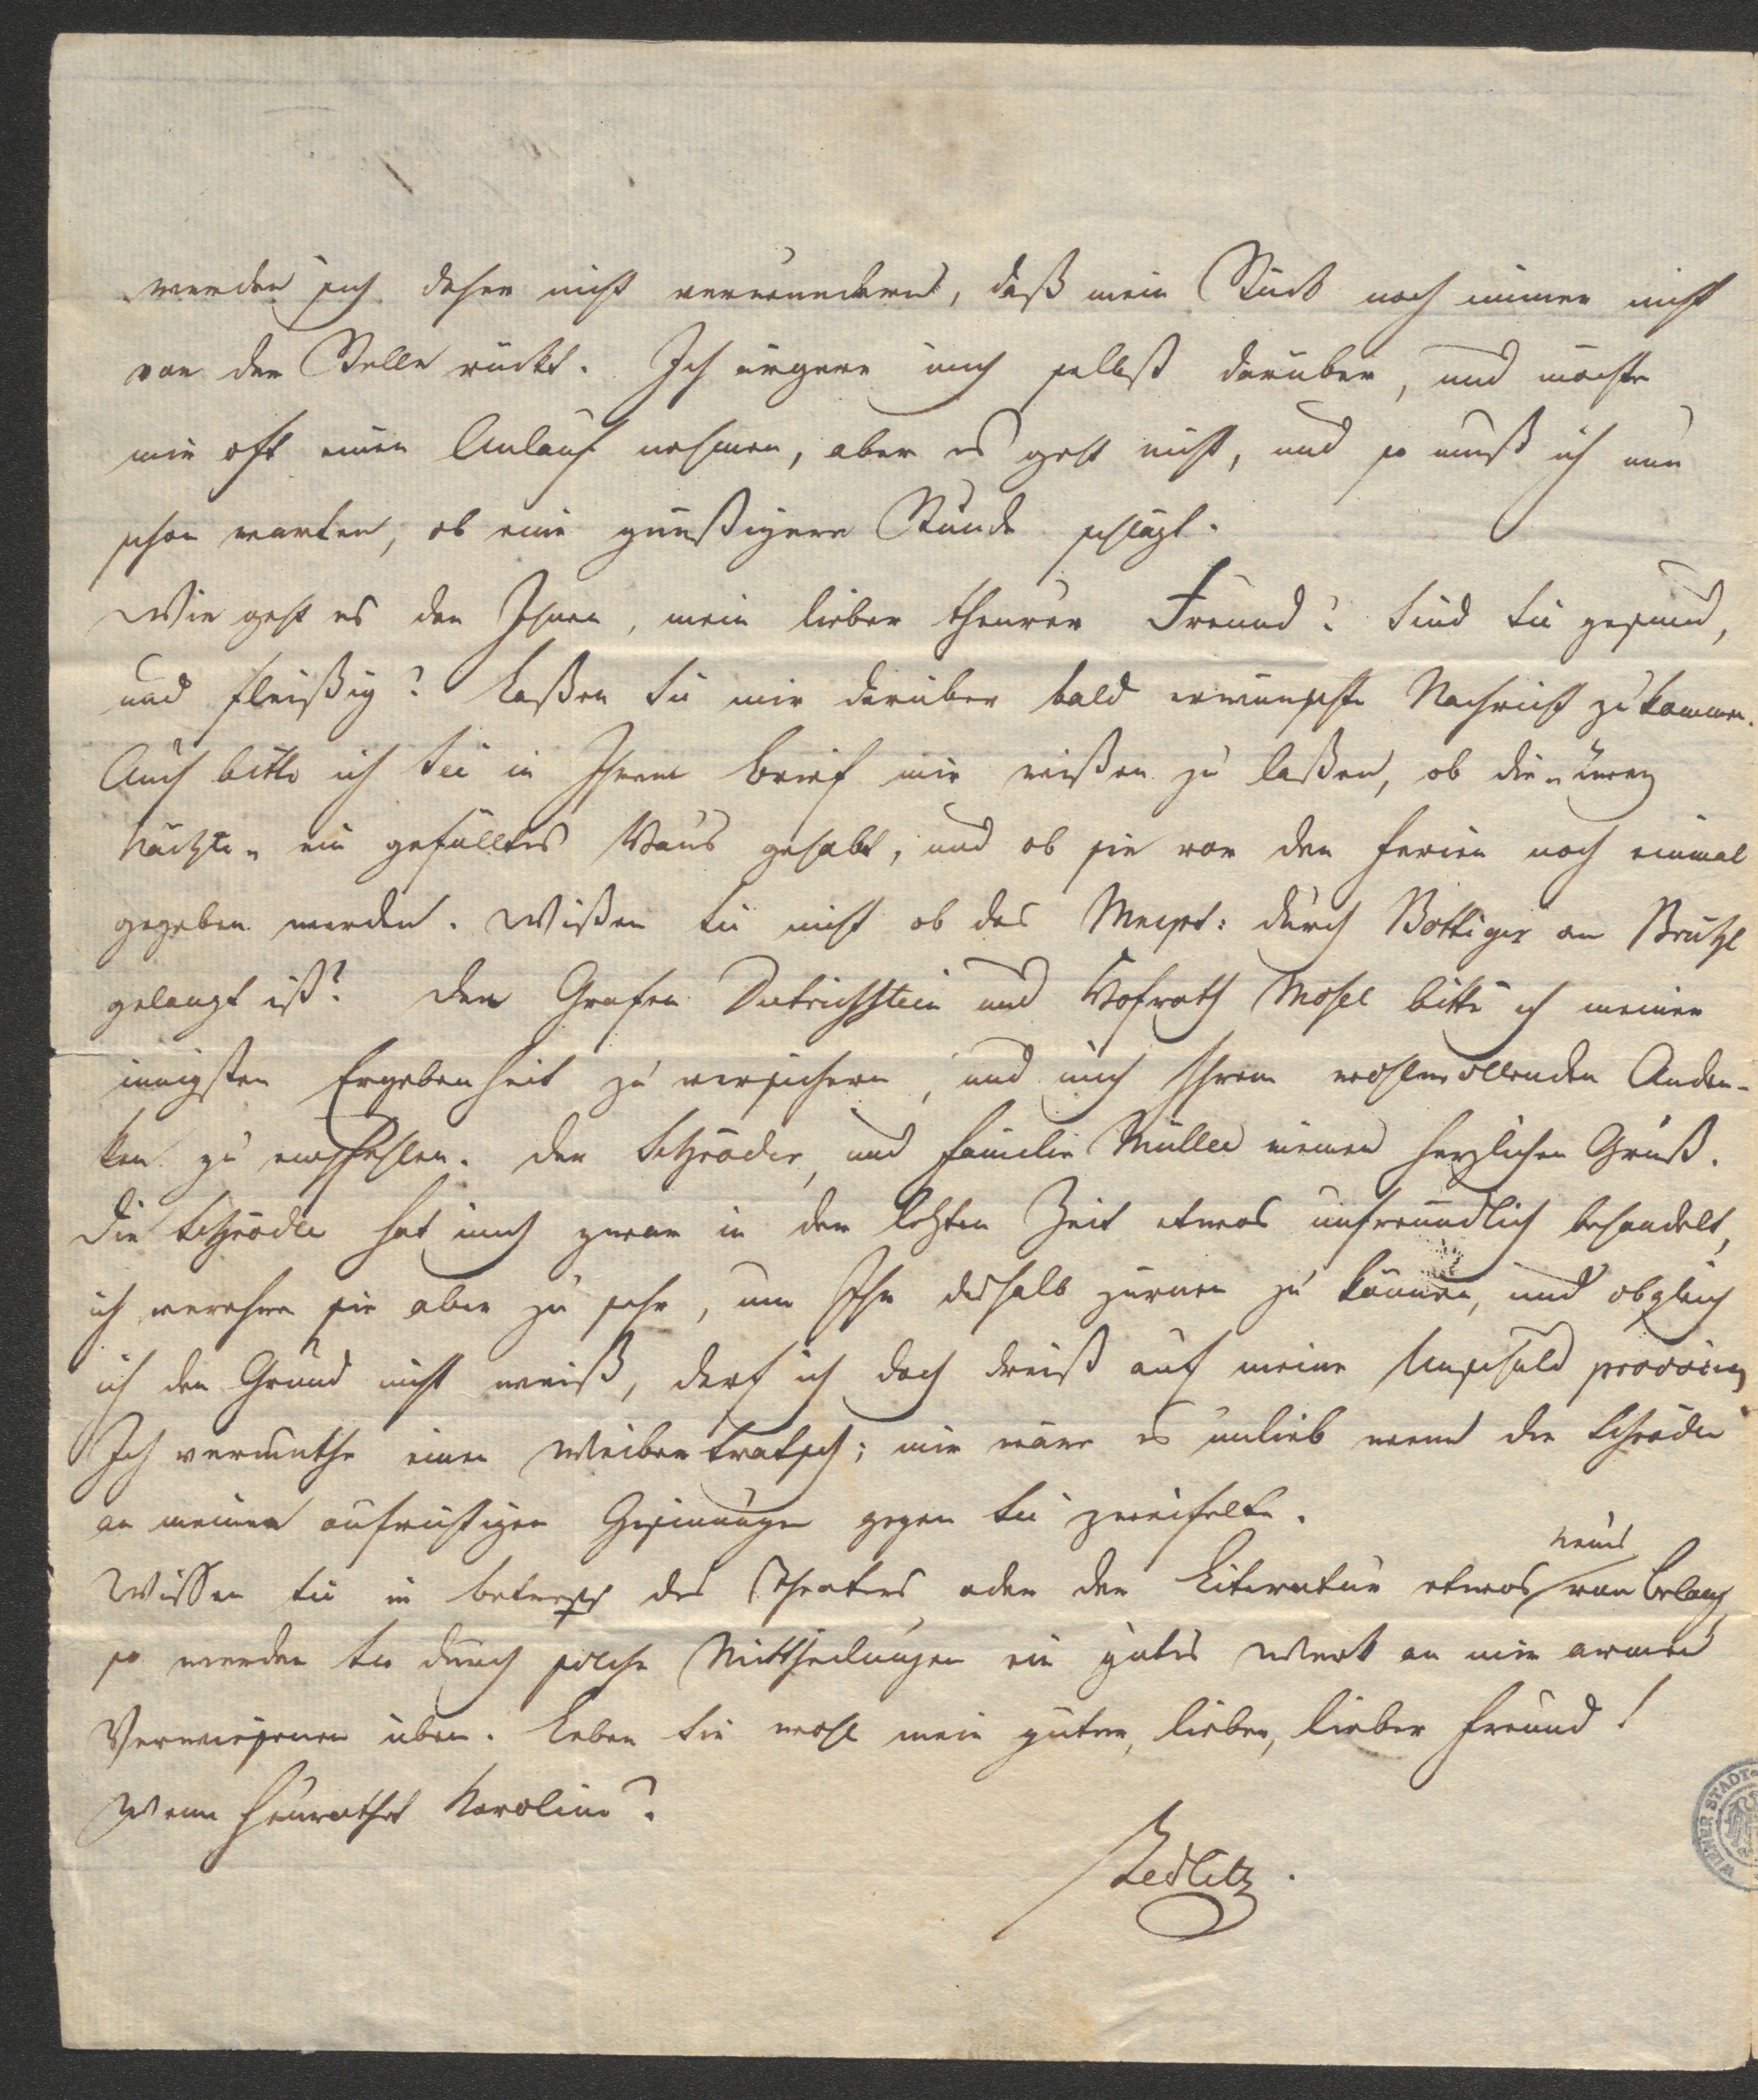 werden sich daher nicht verwundern, daß mein Stück noch immer nicht
von der Stelle rückt. Ich ärgere mich selbst darüber, und möchte
mir oft einen Anlauf nehmen, aber es geht nicht, und so muß ich nun
schon warten, ob eine günstigere Stunde schlägt.
Wie geht es den Ihnen, mein lieber theurer Freund? Sind Sie gesund,
und fleißig? Laßen Sie mir darüber bald erwünschte Nachricht zukommen.
Auch bitte ich Sie in Ihrem Brief mir wißen zu laßen, ob die „zwey
Nächte„ ein gefülltes Haus gehabt, und ob sie vor den Ferien noch einmal
gegeben werden. Wißen Sie nicht ob das Mscpt: durch Böttiger an Brühl
gelangt ist? Den Grafen Dietrichstein und Hofrath Mosel bitte ich meiner
innigsten Ergebenheit zu versichern, und mich Ihrem wohlwollenden Anden-
ken zu empfehlen. Der Schröder, und Familie Müller meinen herzlichen Gruß.
Die Schröder hat mich zwar in der letzten Zeit etwas unfreundlich behandelt,
ich verehre sie aber zu sehr, um Ihr deshalb zürnen zu können, und obgleich
ich den Grund nicht weiß, darf ich doch dreist auf meine Unschuld
Ich vermuthe einen Weibertratsch; mir wäre es unlieb wenn die Schröder
an meinen aufrichtigen Gesinnungen gegen Sie zweifelte.
Wissen Sie in betreff des Theaters oder der Literatur etwas neues von Belang,
so werden Sie durch solche Mittheilungen ein gutes Werk an mir armen
Verwiesenen üben. Leben Sie wohl mein guter, lieber, lieber Freund!
Wann heurathet Karoline?
Zedlitz.
WIENER STADT